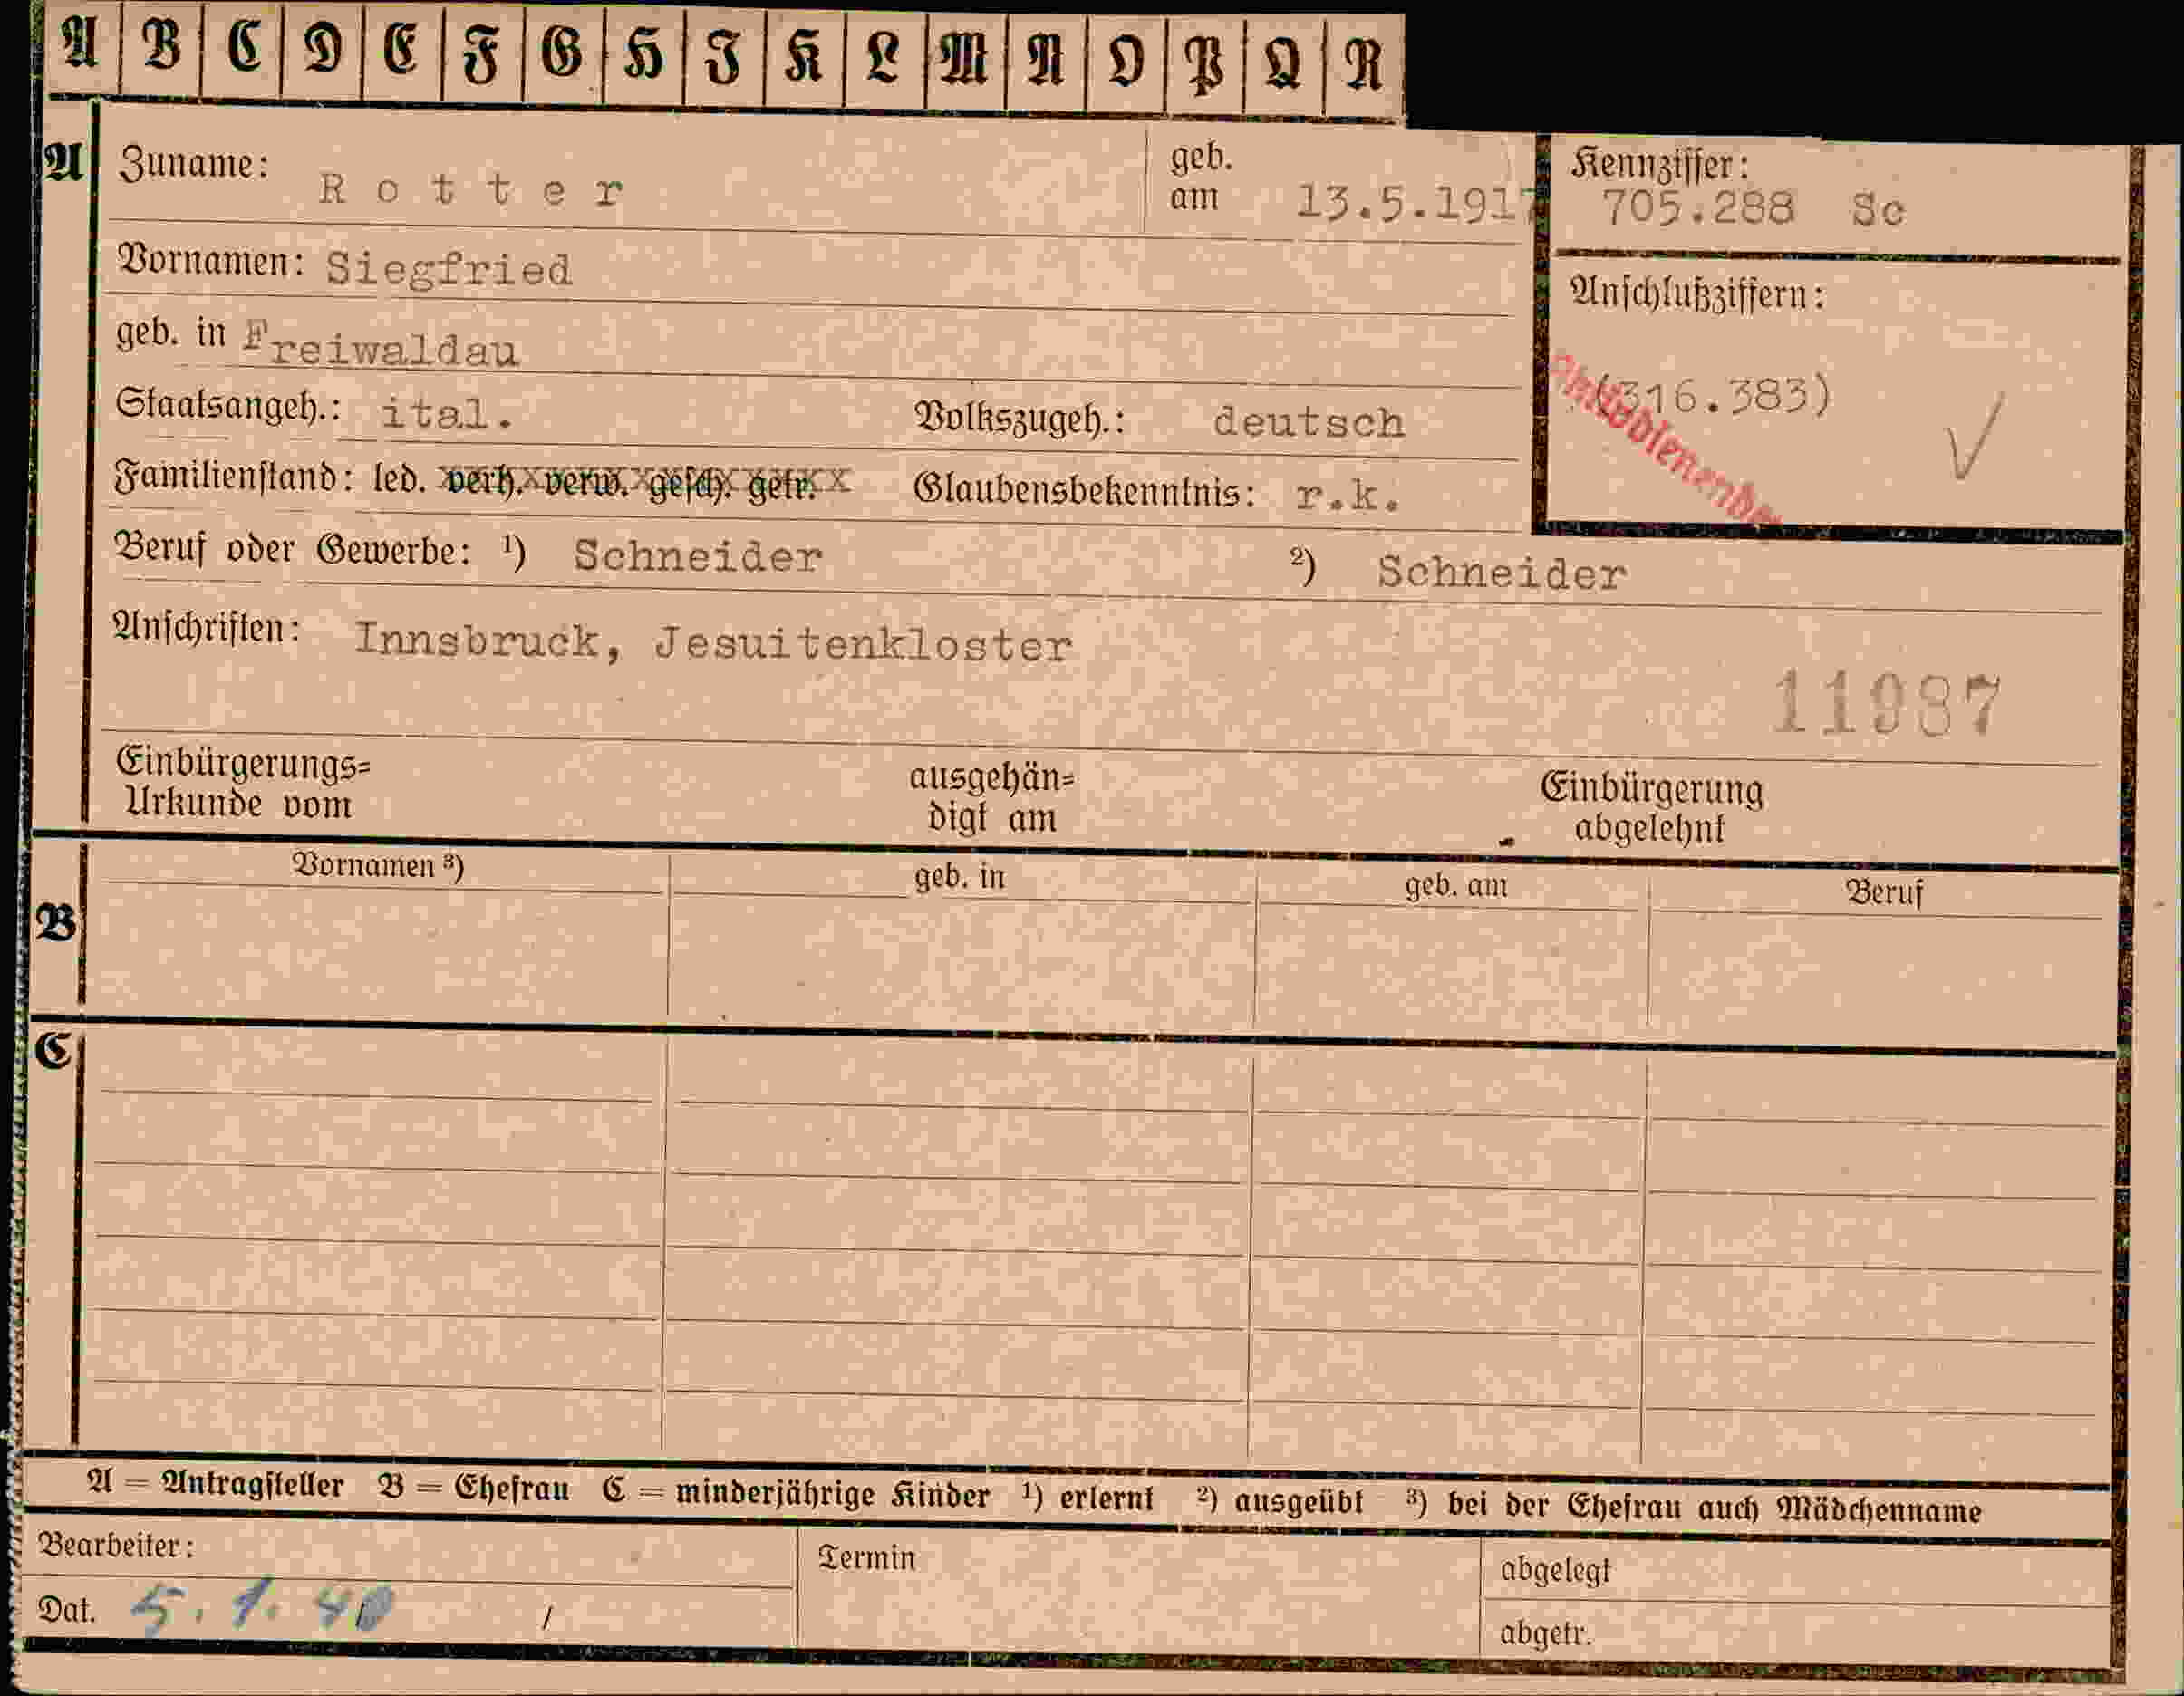 A B C D E F G H I K L M N O P Q R
A Zuname: Rotter geb. am 13.5.1917 Kennziffer: 705.288 Sc
Vornamen: Siegfried
Anschlußziffern:
geb. in Freiwaldau
(316.383)
Staatsangeh.: ital. Volkszugeh.: deutsch
Familienstand: led. verh. verw. gesch. getr. Glaubensbekenntnis: r.k.
Beruf oder Gewerbe: ¹) Schneider ²) Schneider
Anschriften: Innsbruck, Jesuitenkloster
11987
Einbürgerungs=
Urkunde vom
ausgehän=
digt am
Einbürgerung
abgelehnt
B Vornamen ³) geb. in geb. am Beruf
C
A = Antragsteller B = Ehefrau C = minderjährige Kinder ¹) erlernt ²) ausgeübt ³) bei der Ehefrau auch Mädchenname
Bearbeiter: Termin abgelegt
Dat. 5. 1. 40 / abgetr.